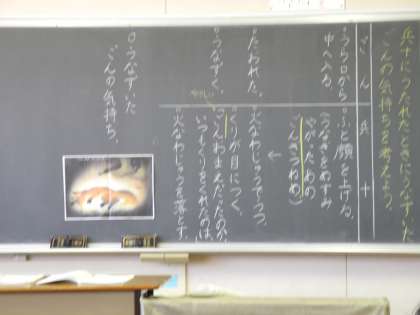 兵十にうたれたときにうなずいた
ごんの気持ちを考えよう。
ごん
兵十
・うら口から
中へ入る。
・ふと顔を上げる。
(うなぎをぬすみ
やがったあの
ごんぎつねめ)
・うたれた。
・火なわじゅうでうつ。
・くりが目につく。
・うなずく。
「ごん、おまえだったのか、
いつもくりをくれたのは。」
・火なわじゅうを落とす。
◎うなずいた
ごんの気持ち。